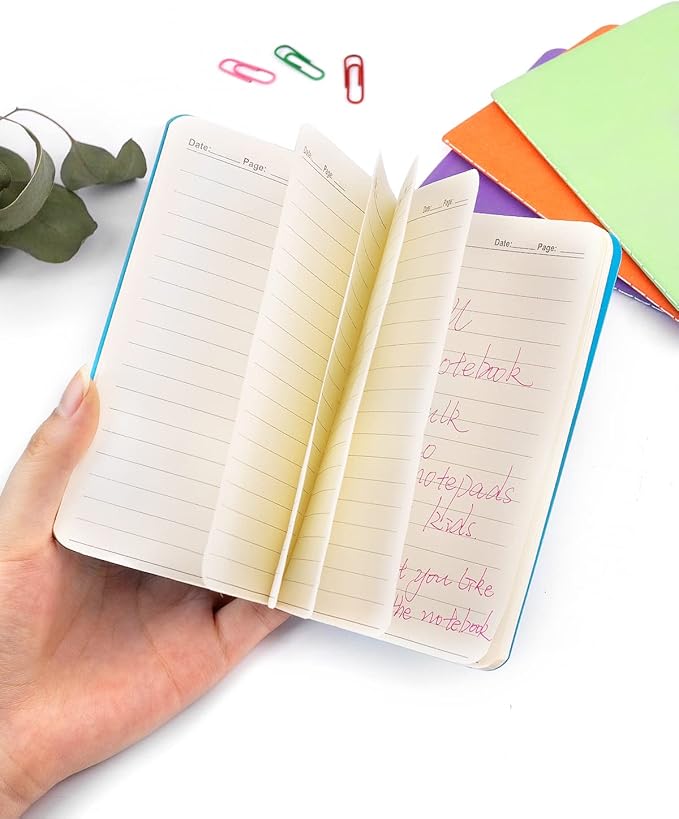 Date:_____ Page:
Date:____ Page: ___
Date:____ Page: ___
Date:_____ Page: _____
otebook
ulk
o
notepads
kids.
t you like
the notebook